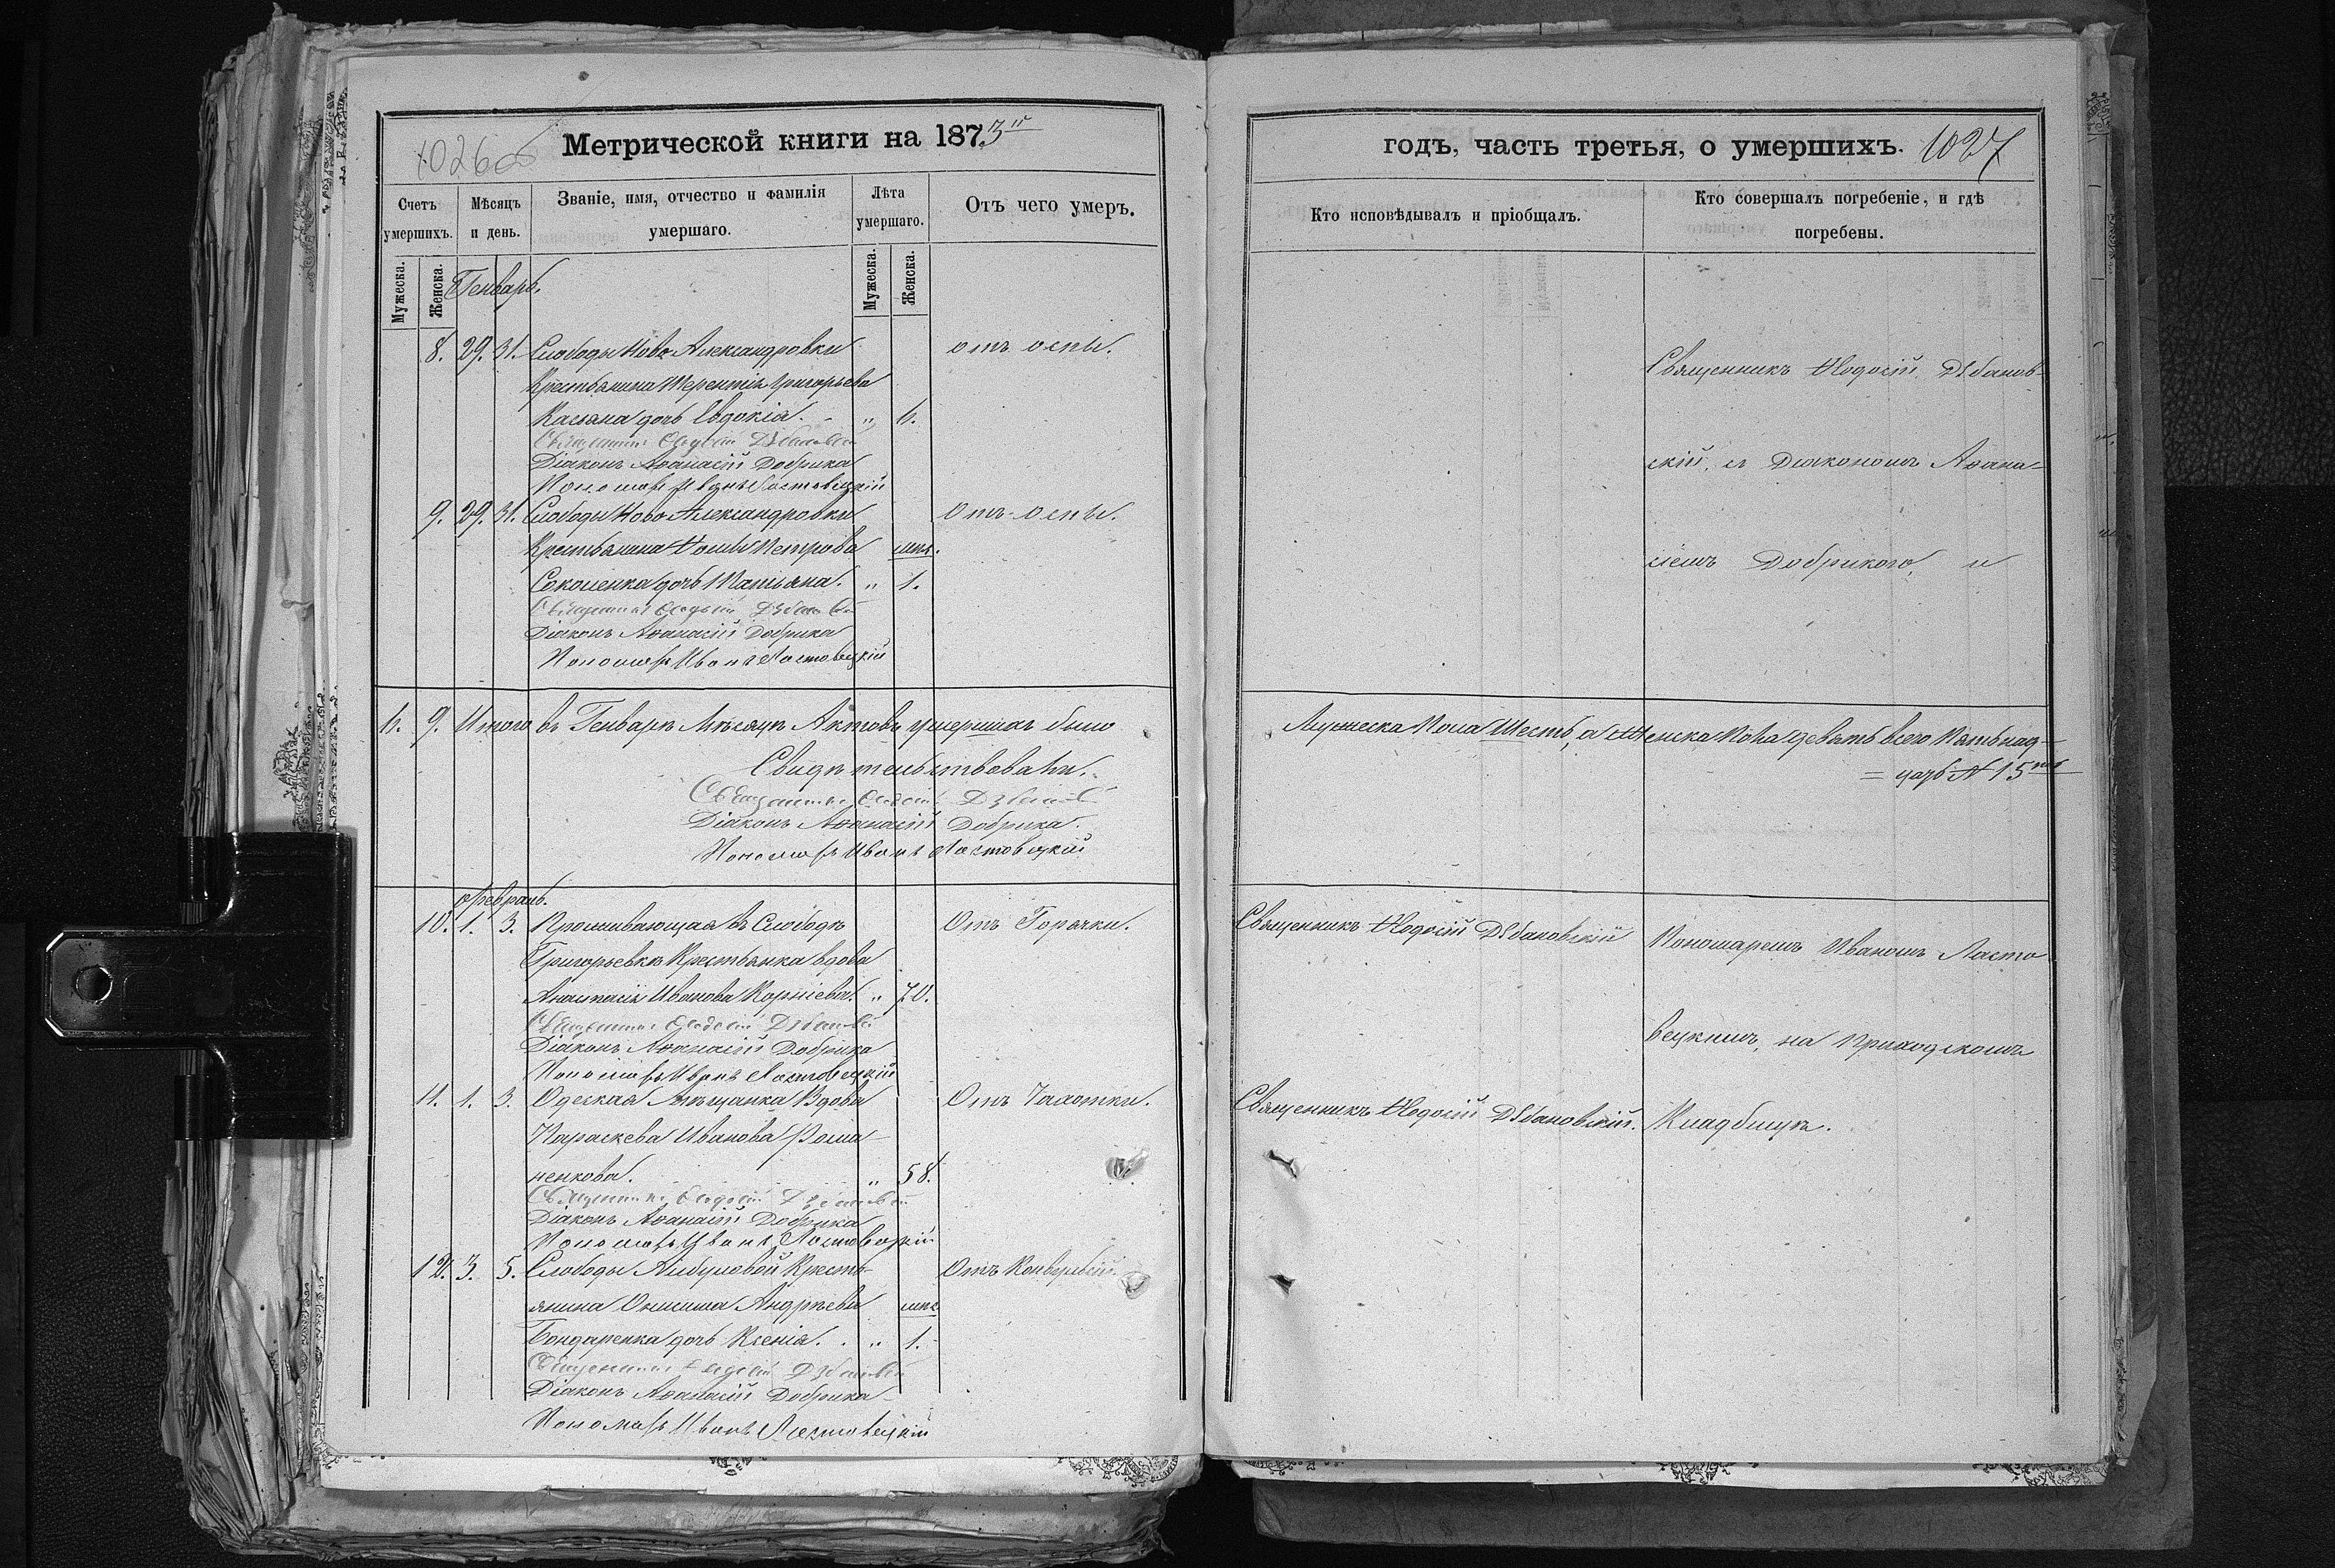 Метрической книги на 1873й
Счетъ умершихъ.
Мѣсяцъ и день.
Званіе, имя, отчество и фамилія умершаго.
Лѣта умершаго.
Отъ чего умеръ.
Мужеска.
Женска.
Мужеска.
Женска.
Генварь.
8. 29. 31. Слободы Ново Александровки отъ оспы.
Крестьянина Терентія Григорьева
Касьяна дочь Евдокія. „
Священникъ Ѳеодосій
Діаконъ Аѳанасій Добрика
Пономарь Иванъ Ластовецкій
9. 29. 31. Слободы Ново Александровки Отъ оспы.
Крестьянина Ѳомы Петрова мѣс.
дочь Татьяна. „ 1.
Священникъ Ѳеодосій
Діаконъ Аѳанасій Добрика
Пономарь Иванъ Ластовецкій
9. Итого въ Генварѣ Мѣсяцѣ Актовъ умершихъ было
Свидѣтельствовали.
Священникъ Ѳеодосій
Діаконъ Аѳанасій Добрика.
Пономарь Иванъ Ластовецкій
Февраль.
10. 1. 3. Проживающая въ Слободѣ Отъ Горячки.
Григорьевкѣ Крестьянка вдова
Анастасія Иванова Корніева. „ 70.
Священникъ Ѳеодосій
Діаконъ Аѳанасій Добрика
Пономарь Иванъ Ластовецкій
11. 1. 3. Одеская Мѣщанка Вдова Отъ Чахотки.
Параскева Иванова Рома-
ненкова. „ 58.
Священникъ Ѳеодосій
Діаконъ Аѳанасій Добрика
Пономарь Иванъ Ластовецкій
12. 3. 5. Слободы Крестъ-
янина Онисима Андрѣева мѣс.
Бондаренка дочь Ксенія. „ 1.
Священникъ Ѳеодосій
Діаконъ Аѳанасій Добрика
Пономарь Иванъ Ластовецкій
годъ, часть третья, о умершихъ. 1027
Кто исповѣдывалъ и пріобщалъ.
Кто совершалъ погребеніе, и гдѣ погребены.
Священникъ Ѳеодосій Дзбанов-
скій, съ Діакономъ Аѳана-
сіемъ Добрикою, и
Мужеска Пола Шесть, а Женска Пола девять всего Пятьнад-
= цать № 15
Священникъ Ѳеодосій Дзбановскій
Пономаремъ Иваномъ Ласто
вецкимъ, на Приходскомъ
Священникъ Ѳеодосій Дзбановскій.
Кладбищѣ.